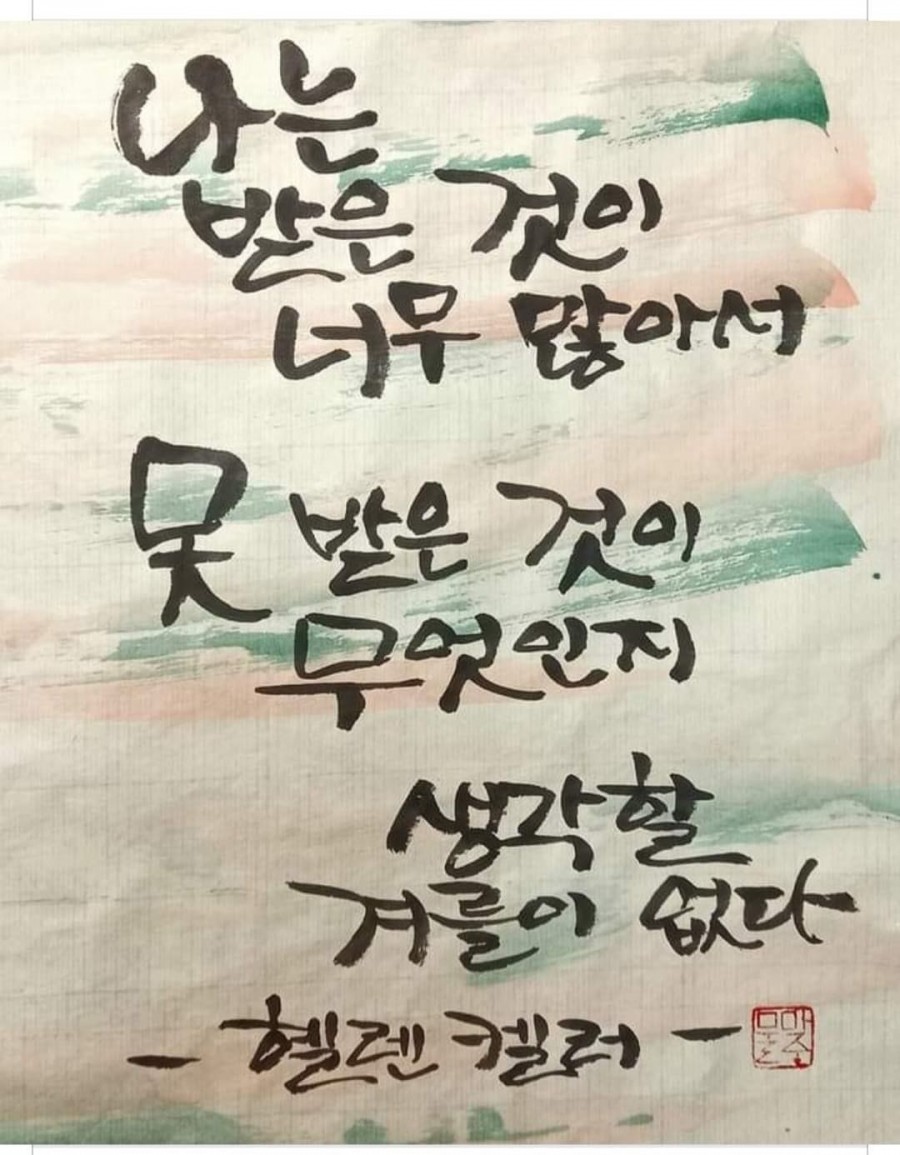 나는
받은 것이
너무 많아서
못 받은 것이
무엇인지
생각할
겨를이 없다
- 헬렌켈러 -